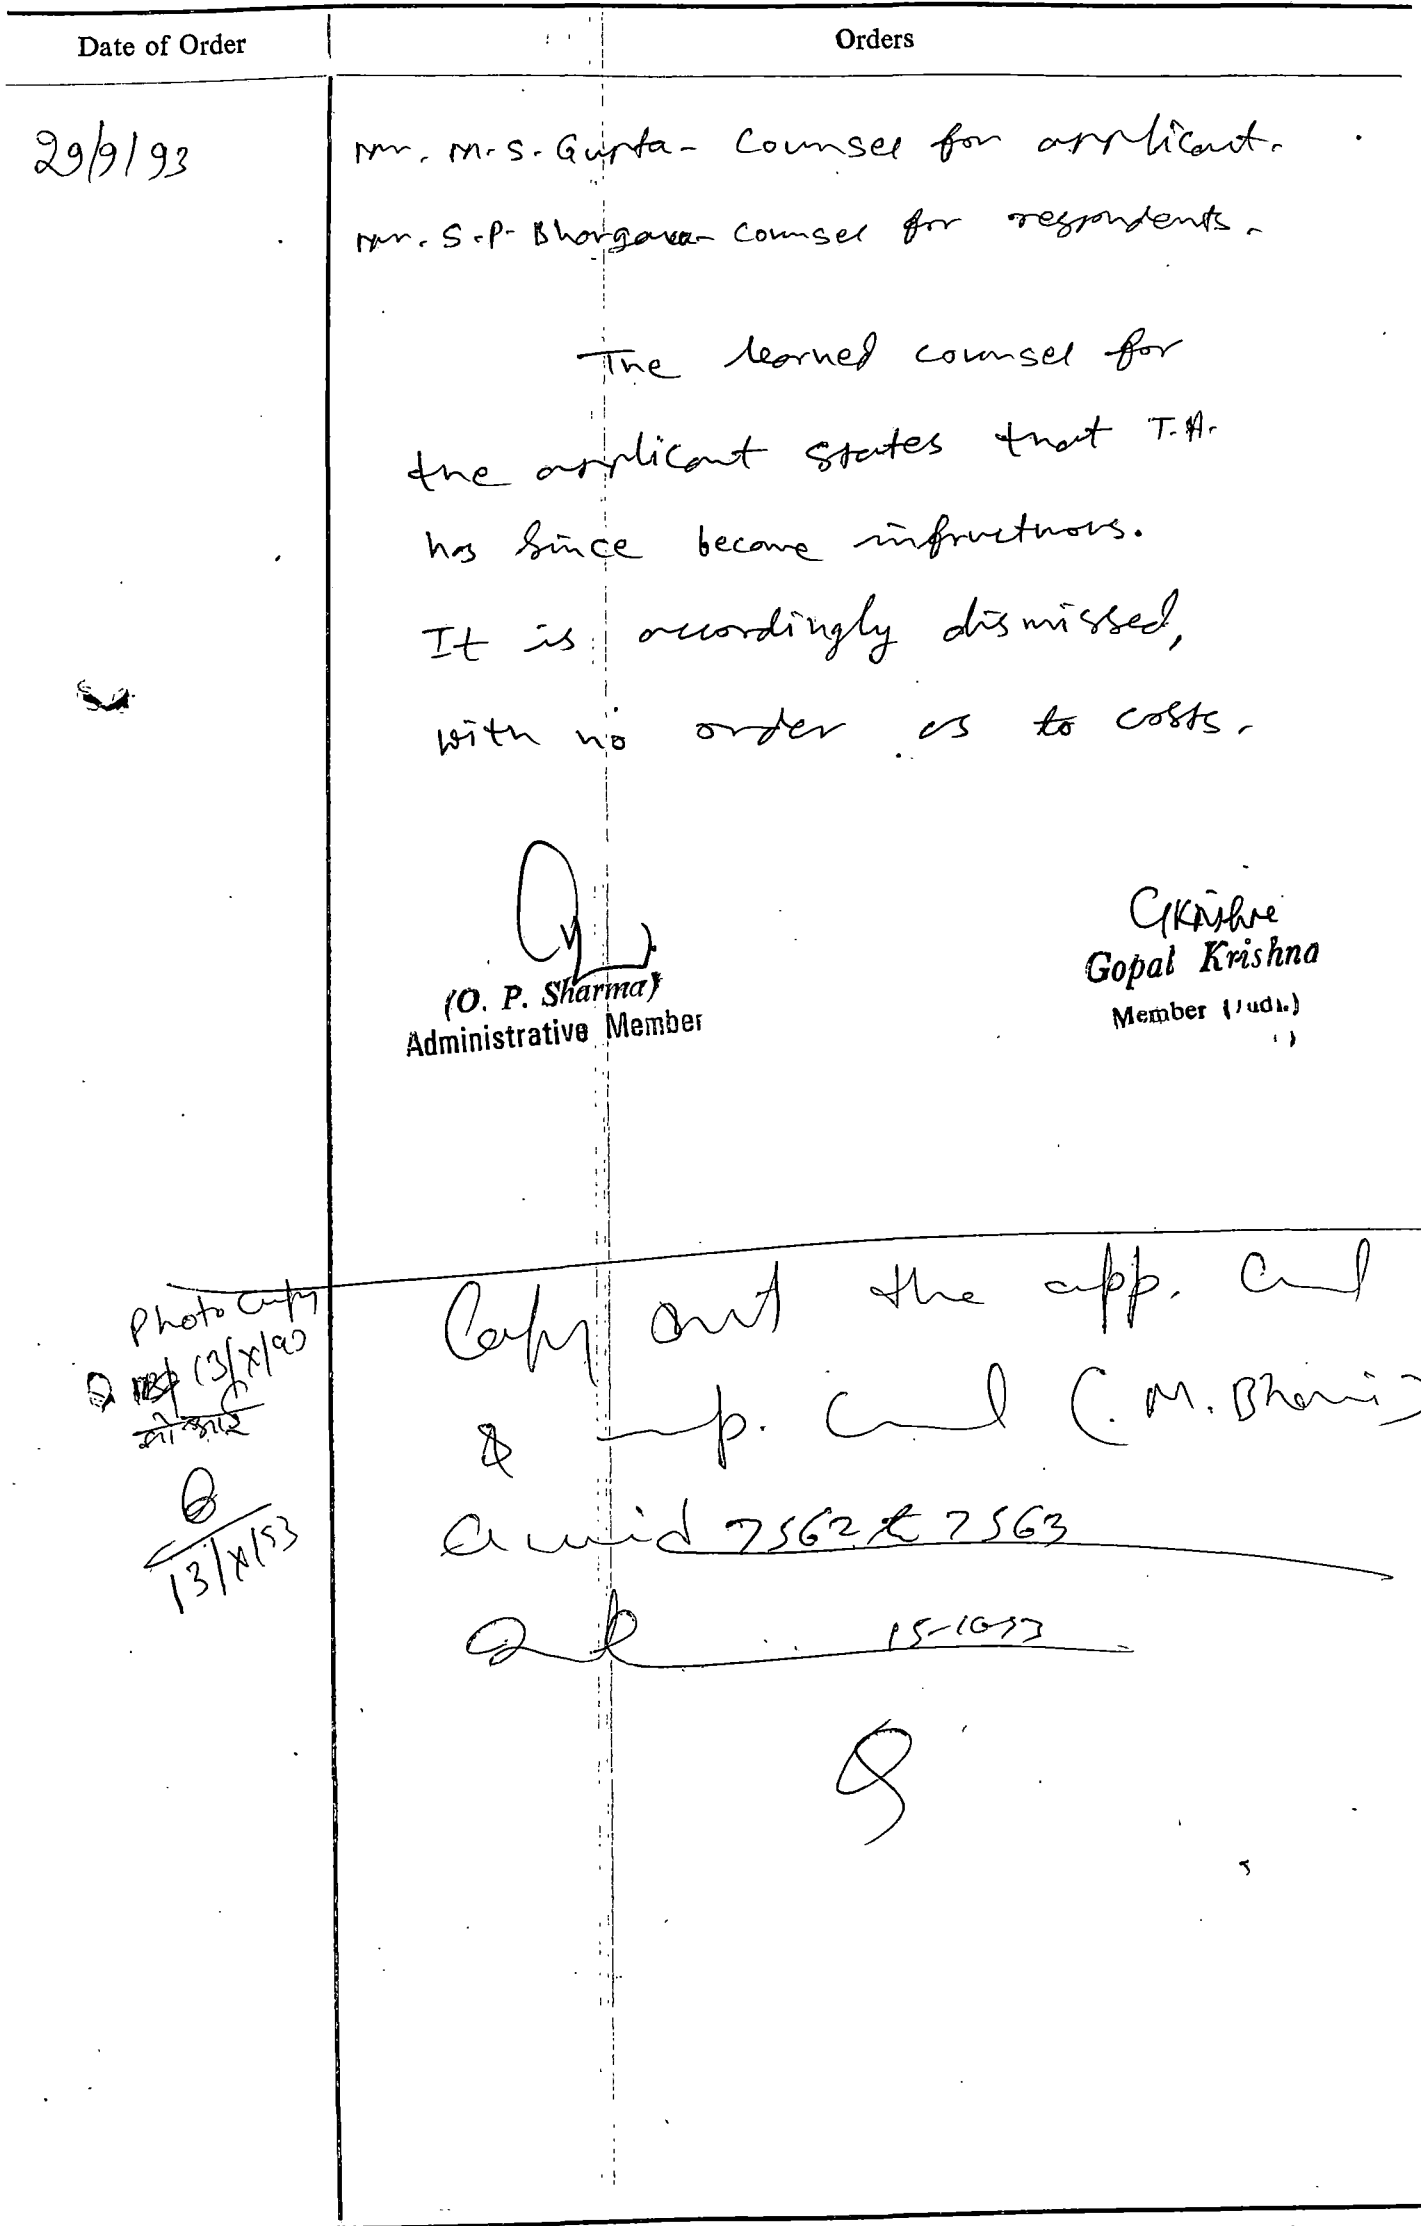 Date of Order
Orders
29/9/93
Mr. M.S. Gupta - Counsel for applicant.
Mr. S.P. Bhargava - Counsel for respondents.
The learned counsel for
the applicant states that T.A.
has since become infructuous.
It is accordingly dismissed,
with no order as to costs.
GKrishna
(O. P. Sharma)
Administrative Member
Gopal Krishna
Member (Judl.)
Photo Copy
13/X/93
13/X/93
Copy out the app.
&
7562 & 7563
15-10-93